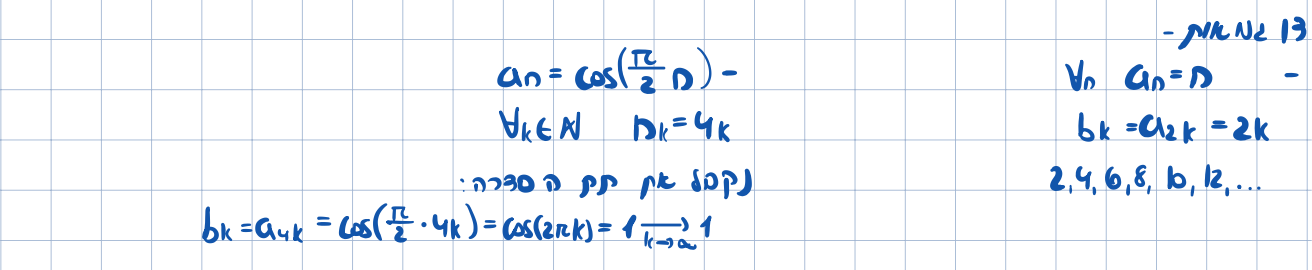 דוגמאות -
- ∀n aₙ = n
bₖ = a₂ₖ = 2k
2, 4, 6, 8, 10, 12, ...
aₙ = cos(π/2 n) -
∀k ∈ ℕ nₖ = 4k
נקבל את תת הסדרה:
bₖ = a₄ₖ = cos(π/2 · 4k) = cos(2πk) = 1 ⟶ 1 k→∞